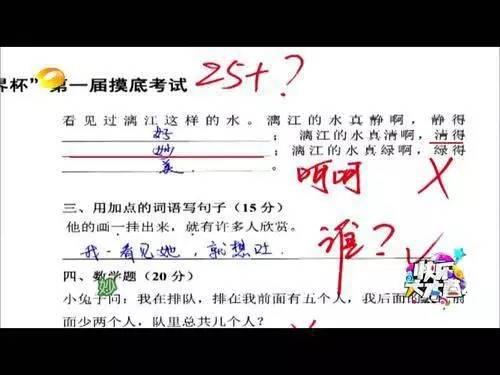 界杯”第一届摸底考试 25+?
看见过漓江这样的水。漓江的水真静啊，静得
好；漓江的水真清啊，清得
妙；漓江的水真绿啊，绿得
美。 呵呵 X
三、用加点的词语写句子（15 分）
他的画一挂出来，就有许多人欣赏。
我一看见她，就想吐 谁？
四、数学题（20 分）
妙
小兔子问：我在排队，排在我前面有五个人，我后面的
前
面少两个人，队里总共几个人？
快乐大本营